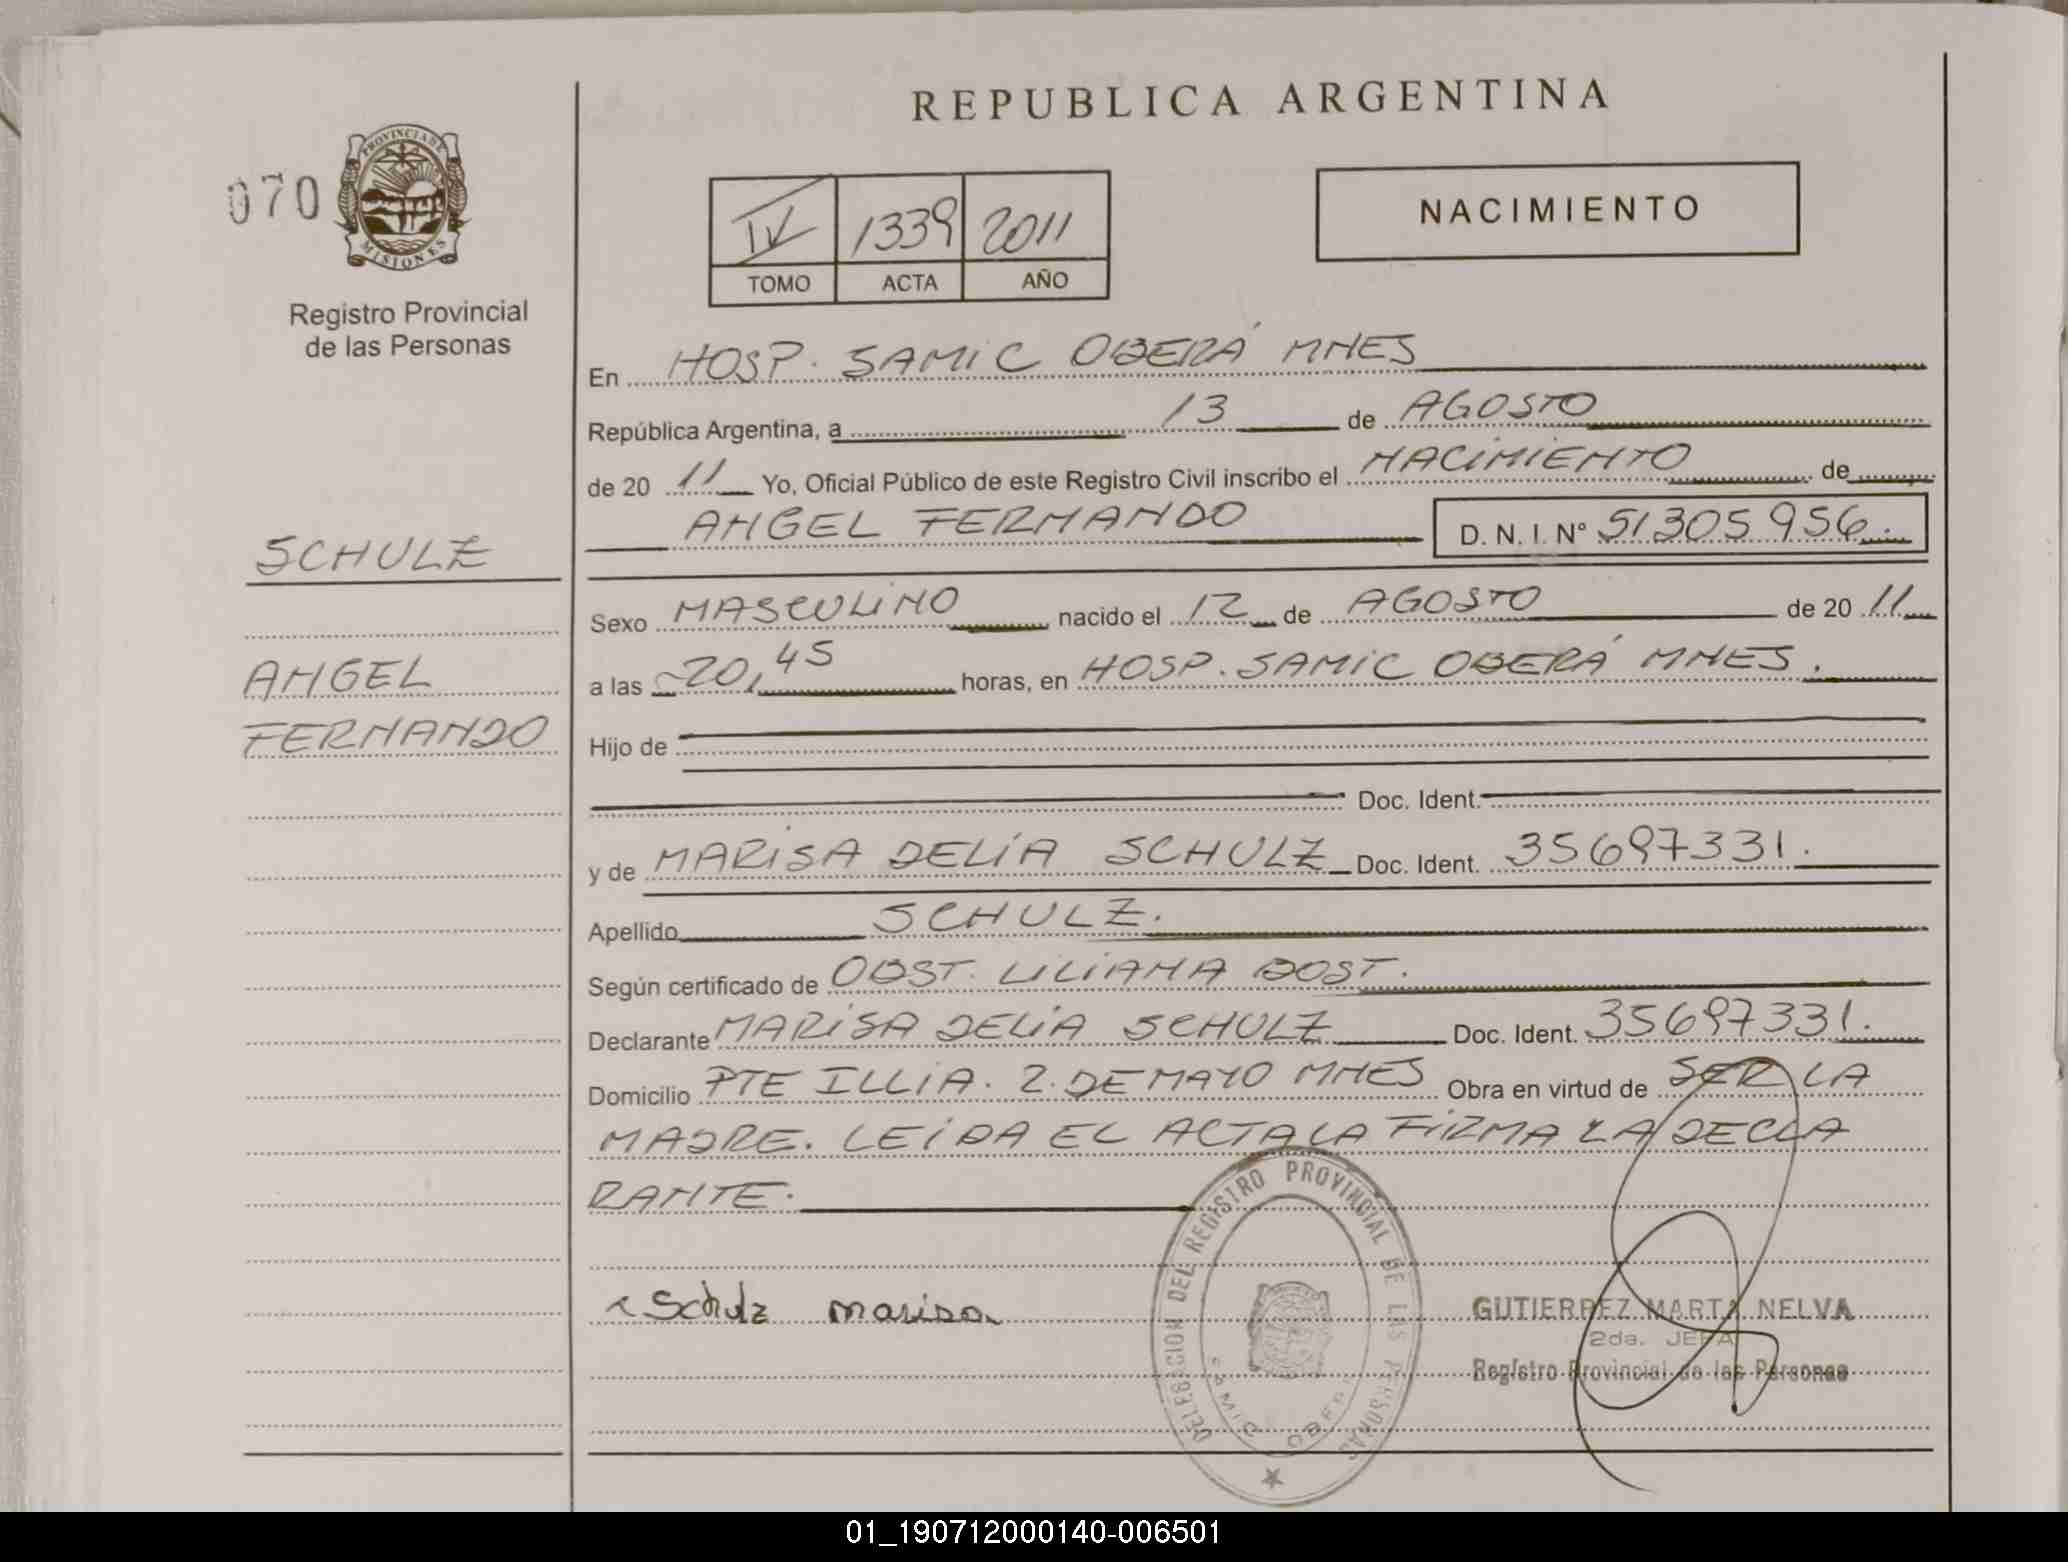 REPUBLICA ARGENTINA
070
PROVINCIA DE
MISIONES
Registro Provincial
de las Personas
IV 1339 2011
TOMO ACTA AÑO
NACIMIENTO
En HOSP. SAMIC OBERÁ MNES
República Argentina, a 13 de AGOSTO
de 20 11 Yo, Oficial Público de este Registro Civil inscribo el NACIMIENTO de
ANGEL FERNANDO D. N. I. Nº 51305956.
SCHULZ
ANGEL
FERNANDO
Sexo MASCULINO nacido el 12 de AGOSTO de 20 11
a las 20,45 horas, en HOSP. SAMIC OBERÁ MNES.
Hijo de
Doc. Ident.
y de MARISA DELIA SCHULZ Doc. Ident. 35697331.
Apellido SCHULZ.
Según certificado de OBST. LILIANA BOST.
Declarante MARISA DELIA SCHULZ Doc. Ident. 35697331.
Domicilio PTE ILLIA. 2. DE MAYO MNES Obra en virtud de SER LA
MADRE. LEIDA EL ACTA LA FIRMA LA DECLA
RANTE.
Schulz marisa
DELEGACION DEL REGISTRO PROVINCIAL DE LAS PERSONAS
SAMIC OBERA
GUTIERREZ MARTA NELVA
2da. JEFA
Registro Provincial de las Personas
01_190712000140-006501